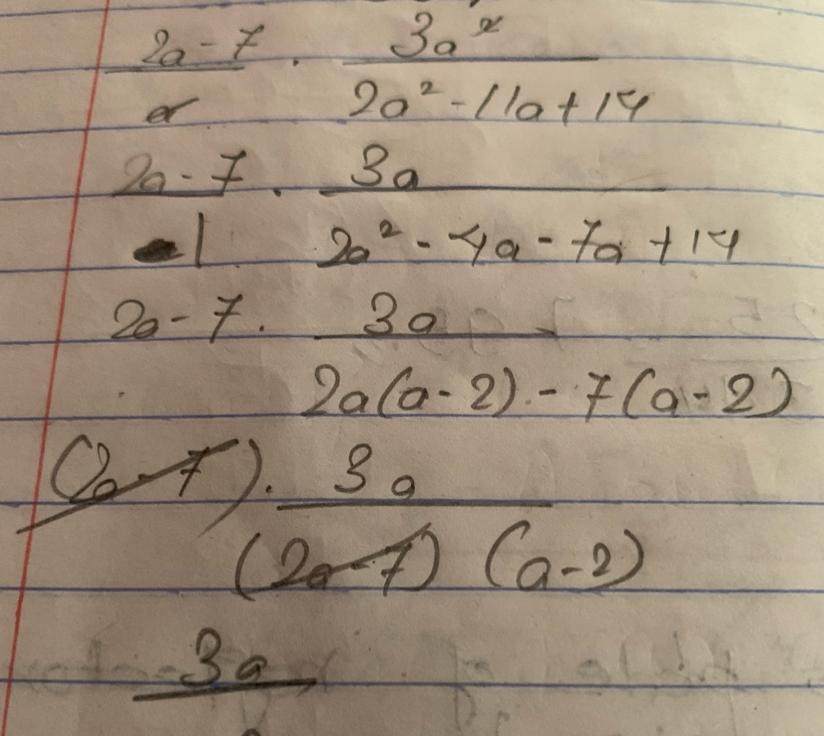 2a-7 . 3a²
a 2a² -11a+14
2a-7 . 3a
1 2a² - 4a - 7a + 14
2a-7 . 3a
2a(a-2) - 7(a-2)
(2a-7) . 3a
(2a-7) (a-2)
3a